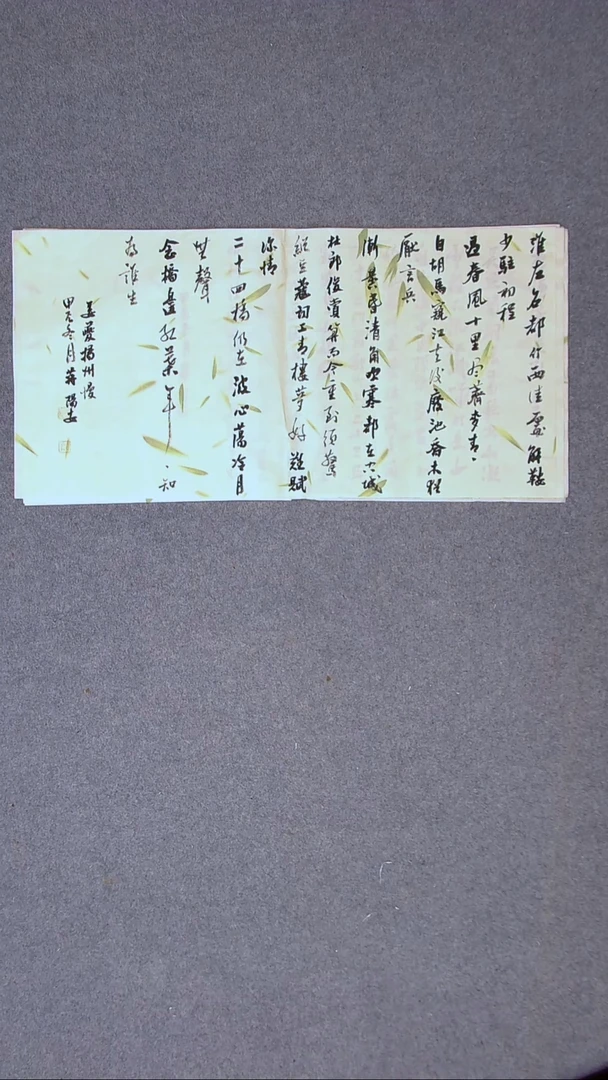 淮左名都竹西佳處解鞍
少駐初程
過春風十里尽薺麥青、
自胡馬窺江去後廢池喬木猶
厭言兵
漸黃昏清角吹寒都在空城
杜郎俊賞算而今重到須驚
縱豆蔻詞工青樓夢好難賦
深情
二十四橋仍在波心蕩冷月
無聲
念橋邊紅藥年、知
為誰生
姜夔揚州慢
冬月蔣